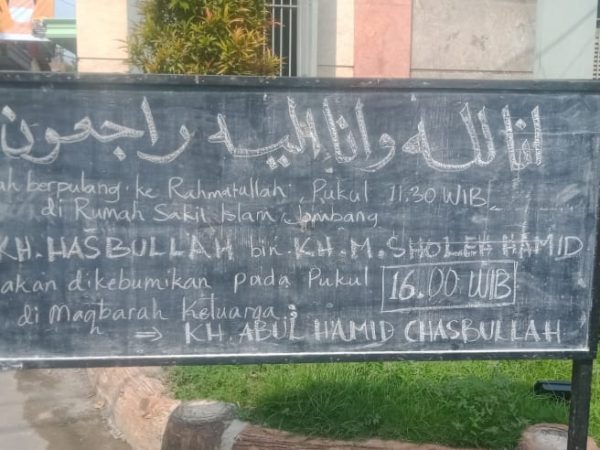 انا لله وانا اليه راجعون
ah berpulang ke Rahmatullah, Pukul 11.30 WIB
di Rumah Sakit Islam Jombang
KH. HASBULLAH bin KH. M. SHOLEH HAMID
akan dikebumikan pada Pukul 16.00 WIB
di Maqbarah Keluarga
h ⇒ KH. ABUL HAMID CHASBULLAH